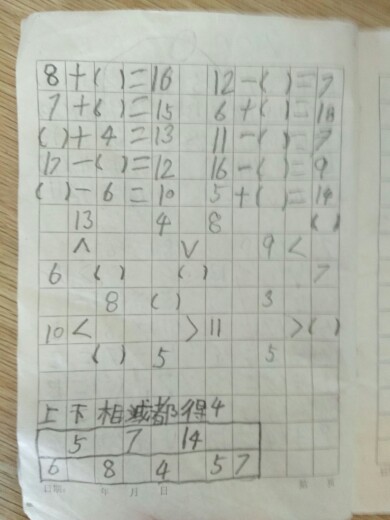 8+( )=16 12-( )=7
7+(6)=15 6+( )=18
( )+4=13 11-( )=7
17-( )=12 16-( )=9
( )-6=10 5+( )=14
13 4 8 ( )
∧ ∨ 9 <
6 ( ) ( ) 7
8 ( ) 3
10 < > 11 > ( )
( ) 5 5
上下相减都得4
5 7 14
6 8 4 5 7
年 月 日